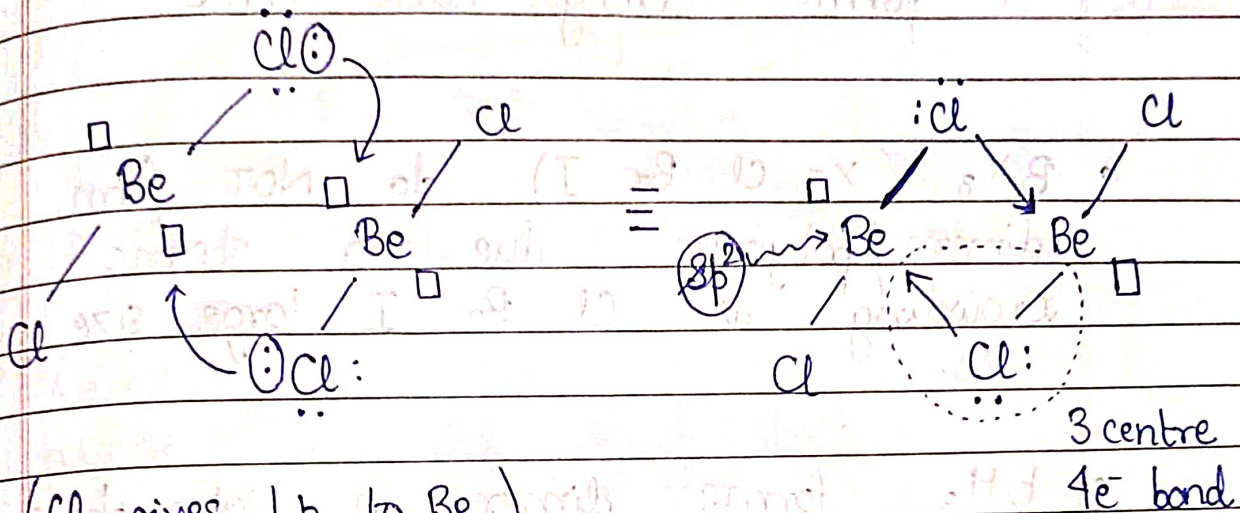 :Cl:
Cl
Be
Be
Cl
:Cl:
≡
:Cl
Cl
sp²
Be ........ Be
Cl
Cl:
3 centre
4e⁻ bond
(Cl gives l.p to Be)